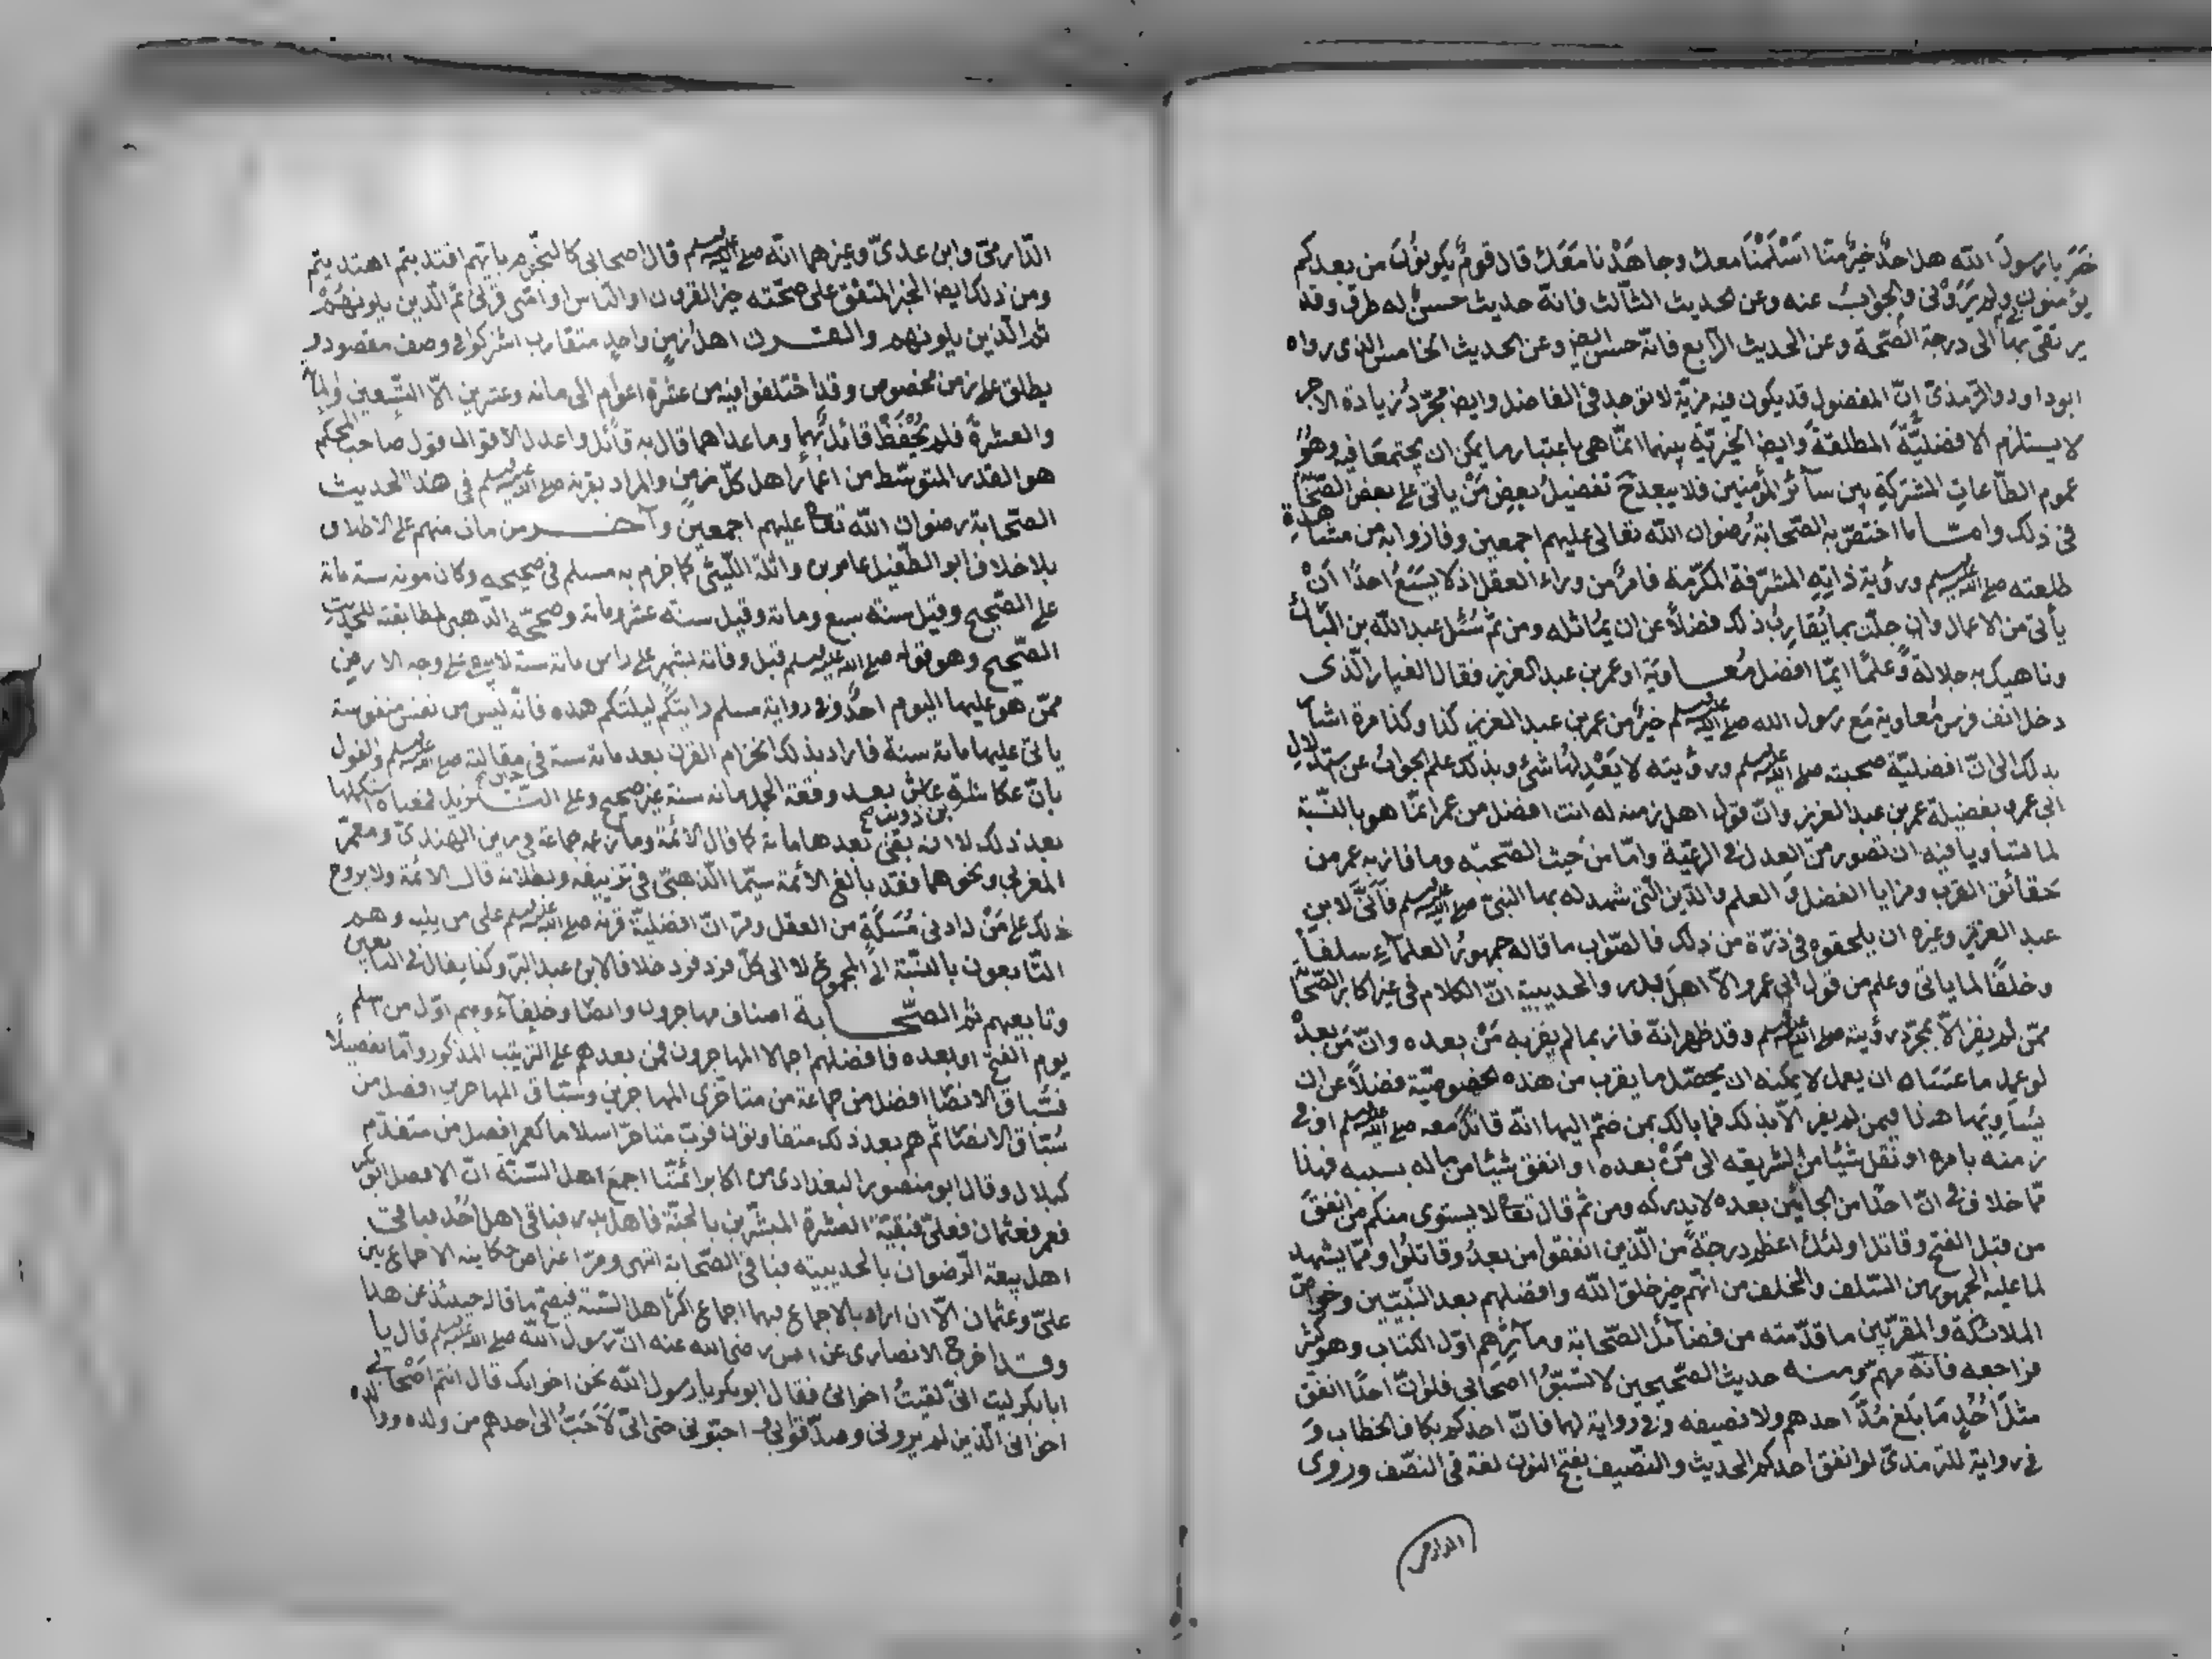 خير يا رسول الله هل احدٌ خيرٌ منّا اَسْلَمْنَا معك وجاهَدْنا مَعَكَ قال قومٌ يكونُونَ من بعدكم
يؤمنون بي ولم يَرَوْنى والجوابُ عنه وعن الحديث الثالث فانّه حديث حسنٌ له طرق وقد
يرتقى بها الى درجة الصّحة وعن الحديث الرّابع فانّه حسن ايضا وعن الحديث الخامس الذى رواه
ابوداود والترمذىّ انّ المفضول قد يكون فيه مزيّة لا توجد فى الفاضل وايضا مجرّد زيادة الاجر
لا يستلزم الافضليَّة المطلقةَ وايضا الخيريّة بينهما انّما هى باعتبار ما يمكن ان يجتمعا فيه وهو
عموم الطّاعاتِ المشتركةِ بين سآئر المؤمنين فلا يبعد ح تفضيلُ بعضِ مَنْ ياتى على بعض الصّحابة
فى ذلك وامّا ما اختصّ به الصّحابةُ رضوان الله تعالى عليهم اجمعين وفازوا به من مشاهدة
طلعته صلى الله عليه وسلم ورؤية ذاتِهِ المشرّفة المكرّمة فامرٌ من وراء العقل اذ لا يَسَعُ احدًا اَنْ
يأتى من الاعمال وان جلّت بما يُقارِبُ ذلك فضلاً عن ان يُماثله ومن ثمّ سُئل عبد الله بن المبارك
وناهيك به جلالة وعلمًا ايّما افضل مُعاويَة او عمر بن عبد العزيز فقال الغبار الّذى
دخل انف فرس مُعاوية مَعَ رسول الله صلى الله عليه وسلم خيرٌ من عمر بن عبد العزيز كذا وكذا مرة اشار
بذلك الى انّ افضليّة صحبته صلى الله عليه وسلم ورؤيته لا يَعْدِلُهَا شئ وبذلك علم الجوابُ عن استدلال
ابى عمر بفضيلة عمر بن عبد العزيز وانّ قول اهل زمنه له انت افضل من عمر انّما هو بالنّسبة
لما تساويا فيه ان تصور من العدل فى الرعيّة وامّا من حيث الصّحبة وما فاز به عمر من
حَقائق القرب ومزايا الفضل وَالعلم والدّين الّتى شهد له بها النبىّ صلى الله عليه وسلم فأنّى لابن
عبد العزيز وغيره ان يلحقوه فى ذرّة من ذلك فالصّواب ما قاله جمهورُ العلمآءِ سلفاً
وخلفًا لما ياتى وعلم من قول ابى عمر والّا اهل بدر والحديبية انّ الكلام فى غير اكابر الصّحابة
ممّن لم يفز الّا بمجرّد رؤيته صلى الله عليه وسلم وقد ظهر انّه فاز بما لم يفز به مَنْ بعده وانّ مَن بعدَهُ
لو عمل ما عَسَاه ان يعمل لا يمكنه ان يحصّل ما يقرب من هذه الخصوصيّة فضلاً عن ان
يُساوِيَها هذا فيمن لم يفز الّا بذلك فما بالك بمن ضمّ اليها انّه قاتل معه صلى الله عليه وسلم او فى
زمنه بامره او نقل شيئا من الشريعه الى مَنْ بعده او انفق شيئا من ماله بسببه فهذا
ممّا خلاف فى انّ احدًا من الجائين بعده لا يدركه ومن ثم قال تعا لا يستوى منكم من انفق
من قبل الفتح وقاتل اولئك اعظم درجةً من الّذين انفقوا من بعدُ وقاتلُوا وممّا يشهد
لما عليه الجمهور من السّلف والخلف من انّهم خير خلق الله وافضلهم بعد النّبيّين وخواصّ
الملائكة والمقرّبين ما قدّمته من فضآئل الصّحابة ومآثِرهم اوّل الكتاب وهو كثير
فراجعه فانّه مهمّ ومنه حديث الصّحيحين لا تسُبّوُا اصحابى فلو انّ احدًا انفق
مثلَ اُحُدٍ مَا بَلَغ مُدَّ احدهم ولا نصيفه وفى رواية لهما فانّ احدكم بكاف الخطاب وَ
فى رواية للترمذىّ لو انفق احدكم الحديث والنّصيف بفتح النون لغة فى النصّف وروى
الدارمى
الدّارمىّ وابن عدىّ وغيرهما انّه صلى الله عليه وسلم قال اصحابى كالنّجوم بايّهم اقتديتم اهتديتم
ومن ذلك ايضا الخبر المتفق على صحّته خير القرون او النّاس او امّتى قرنى ثمّ الّذين يلونهُمْ
ثم الّذين يلونهم والقرن اهل زمنٍ واحدٍ متقارب اشتركوا فى وصف مقصود و
يطلق على زمن مخصوص وقد اختلفوا فيه من عشرة اعوام الى مائه وعشرين الّا السّبعين والمائة
والعشرة فلم يُحْفَظْ قائل بهما وما عداهما قال به قائل واعدل الاقوال قول صاحب المحكم
هو القدر المتوسّط من اعمار اهل كلّ زمن والمراد بقرنه صلى الله عليه وسلم فى هذا الحديث
الصّحابة رضوان الله تعا عليهم اجمعين وآخر من مات منهم على الاطلاق
بلا خلاف ابو الطّفيل عامر بن واثلة اللّيثى كما جزم به مسلم فى صحيحه وكان موته سنة مائة
على الصّحيح وقيل سنة سبع ومائة وقيل سنة عشر ومائة وصحّحه الذّهبى لمطابقته للحديث
الصّحيح وهو قوله صلى الله عليه وسلم قبل وفاته بشهر على راس مائة سنة لا يبقى على وجه الارض
ممّن هو عليها اليوم احدٌ وفى رواية مسلم رايتَكم ليلتَكم هذه فانّه ليس من نفس منفوسة
ياتى عليها مائة سنة فاراد بذلك انخرام القرن بعد مائة سنة فى مقالته صلى الله عليه وسلم والقول
بانّ عكاشة بن ذويب عاش بعد وقعة الجمل مائه سنة غير صحيح وعلى التّنزيل فمعناه استكملها
بعد ذلك لا انه بقى بعدها مائة كما قال الائمّة وما زعمه جماعة فى رتن الهندىّ ومعمّر
المغربى ونحوهما فقد بالغ الائمّة سيّما الّذهبى فى تزييفه وبطلانه قال الائمّة ولا يروج
ذلك على مَنْ له ادنى مُسْكَةٍ من العقل ومرّ انّ افضليّة قرنه صلى الله عليه وسلم على من يليه وهم
التّابعون بالنّسبة الى المجموع لا الى كلّ فرد فرد خلافا لابن عبد البرّ وكذا يقال فى التابعين
وتابعيهم ثمّ الصّحابة اصناف مهاجرون وانصار وخلفآء وهم اوّل من اسلم
يوم الفتح او بعده فافضلهم اجمالا المهاجرون فمن بعدهم على الترتيب المذكور وامّا تفصيلاً
فسُبّاق الانصار افضل من جماعة من متاخّرى المهاجرين وسُبّاق المهاجرين افضل من
سُبّاق الانصار ثمّ هم بعد ذلك متفاوتون فربّ متاخرّ اسلاما كعمر افضل من متقدّم
كبلال وقال ابو منصور البغدادى من اكابر ائمّتنا اجمع اهل السّنّة انّ الافضل ابوبكر
فعمر فعثمان فعلىّ فبقيّة العشرة المبشّرين بالجنّة فاهل بدر فباقى اهل اُحُد فباقى
اهل بيعة الرّضوان بالحديبية فباقى الصّحابة انتهى ومرّ اعتراض حكاية الاجماع بين
علىّ وعثمان الّا ان اراد بالاجماع فيهما اجماع اكثر اهل السّنة فيصحّ ما قاله حينئذ عن هذا
وقد اخرج الانصارى عن انس رضى الله عنه انّ رسول الله صلى الله عليه وسلم قال يا
ابابكر ليت انّى لقيتُ اخوانى فقال ابوبكر يا رسول الله نحن اخوانك قال انتم اصحابى
اخوانى الّذين لم يرونى وصدّقوا بى واحبّونى حتى انّى لَاَحَبُّ الى احدهم من ولده ووالده